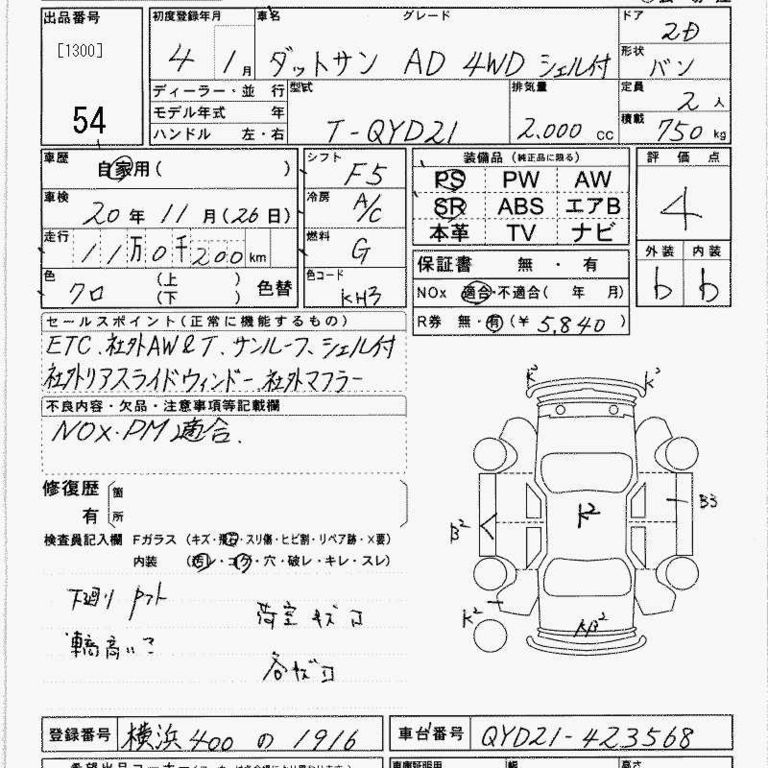 出品番号 初度登録年月 車名 グレード ドア 2D
[1300] 4 1月 ダットサン AD 4WD シェル付 形状 バン
54 ディーラー・並 行 型式 排気量 定員 2人
モデル年式 年 T-QYD21 2.000cc 積載 750kg
ハンドル 左・右
車歴 自家用( ) シフト F5 装備品(純正品に限る) 評価点
車検 20年11月(26日) 冷房 A/C PS PW AW 4
SR ABS エアB
走行 11万0千200km 燃料 G 本革 TV ナビ 外装 内装
色 クロ (上 ) (下 ) 色替 色コード KH3 保証書 無・有 b b
NOx 適合・不適合( 年 月)
セールスポイント(正常に機能するもの) R券 無・有(¥ 5,840 )
ETC、社外AW&T、サンルーフ、シェル付
社外リアスライドウィンドー、社外マフラー
不良内容・欠品・注意事項等記載欄
NOx・PM適合、
修復歴 箇
有 所
検査員記入欄 Fガラス (キズ・飛石・スリ傷・ヒビ割・リペア跡・X要)
内装 (汚レ・コゲ・穴・破レ・キレ・スレ)
K² K³
K²
B² B3
K²
KB²
下廻り
荷室 キズ 凹
車高高い
各キズ凹
登録番号 横浜 400 の 1916 車台番号 QYD21-423568